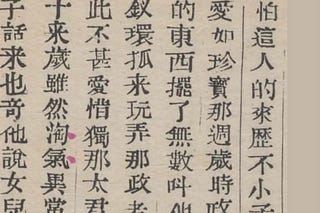 怕這人的來歷不小子
愛如珍寶那週歲時政
的東西擺了無數叫他
釵環抓来玩弄那政老
此不甚愛惜獨那太君
十来歲雖然淘氣異常
子話来也奇他說女兒